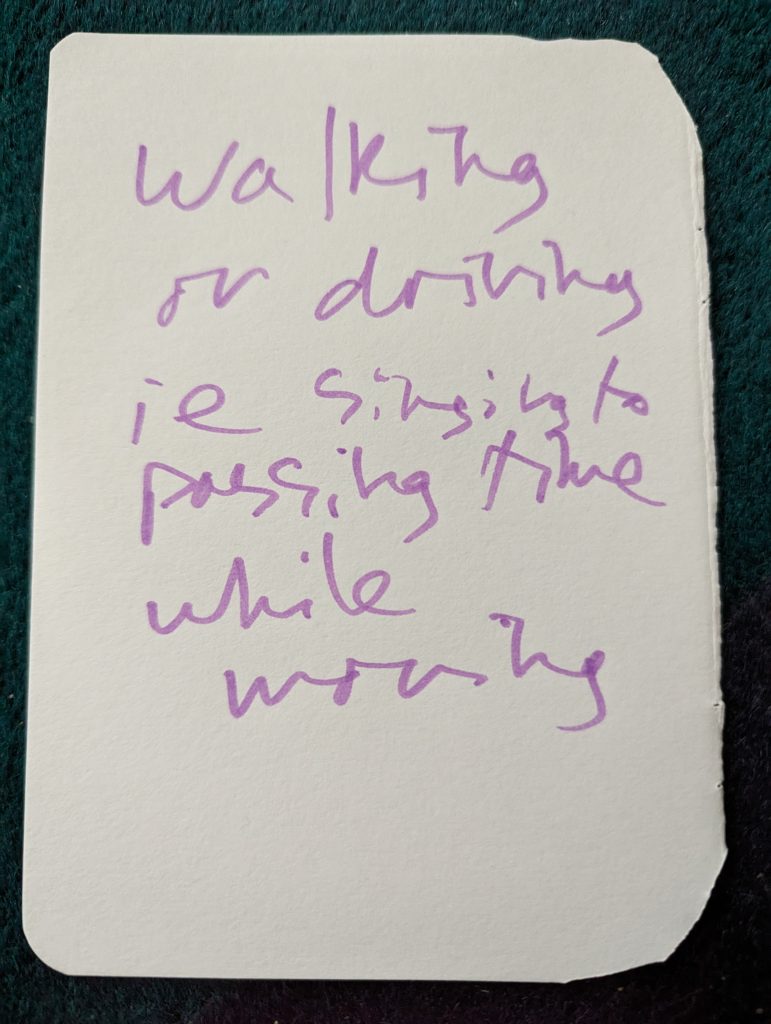 Walking
or driving
ie singing to
passing time
while
moving